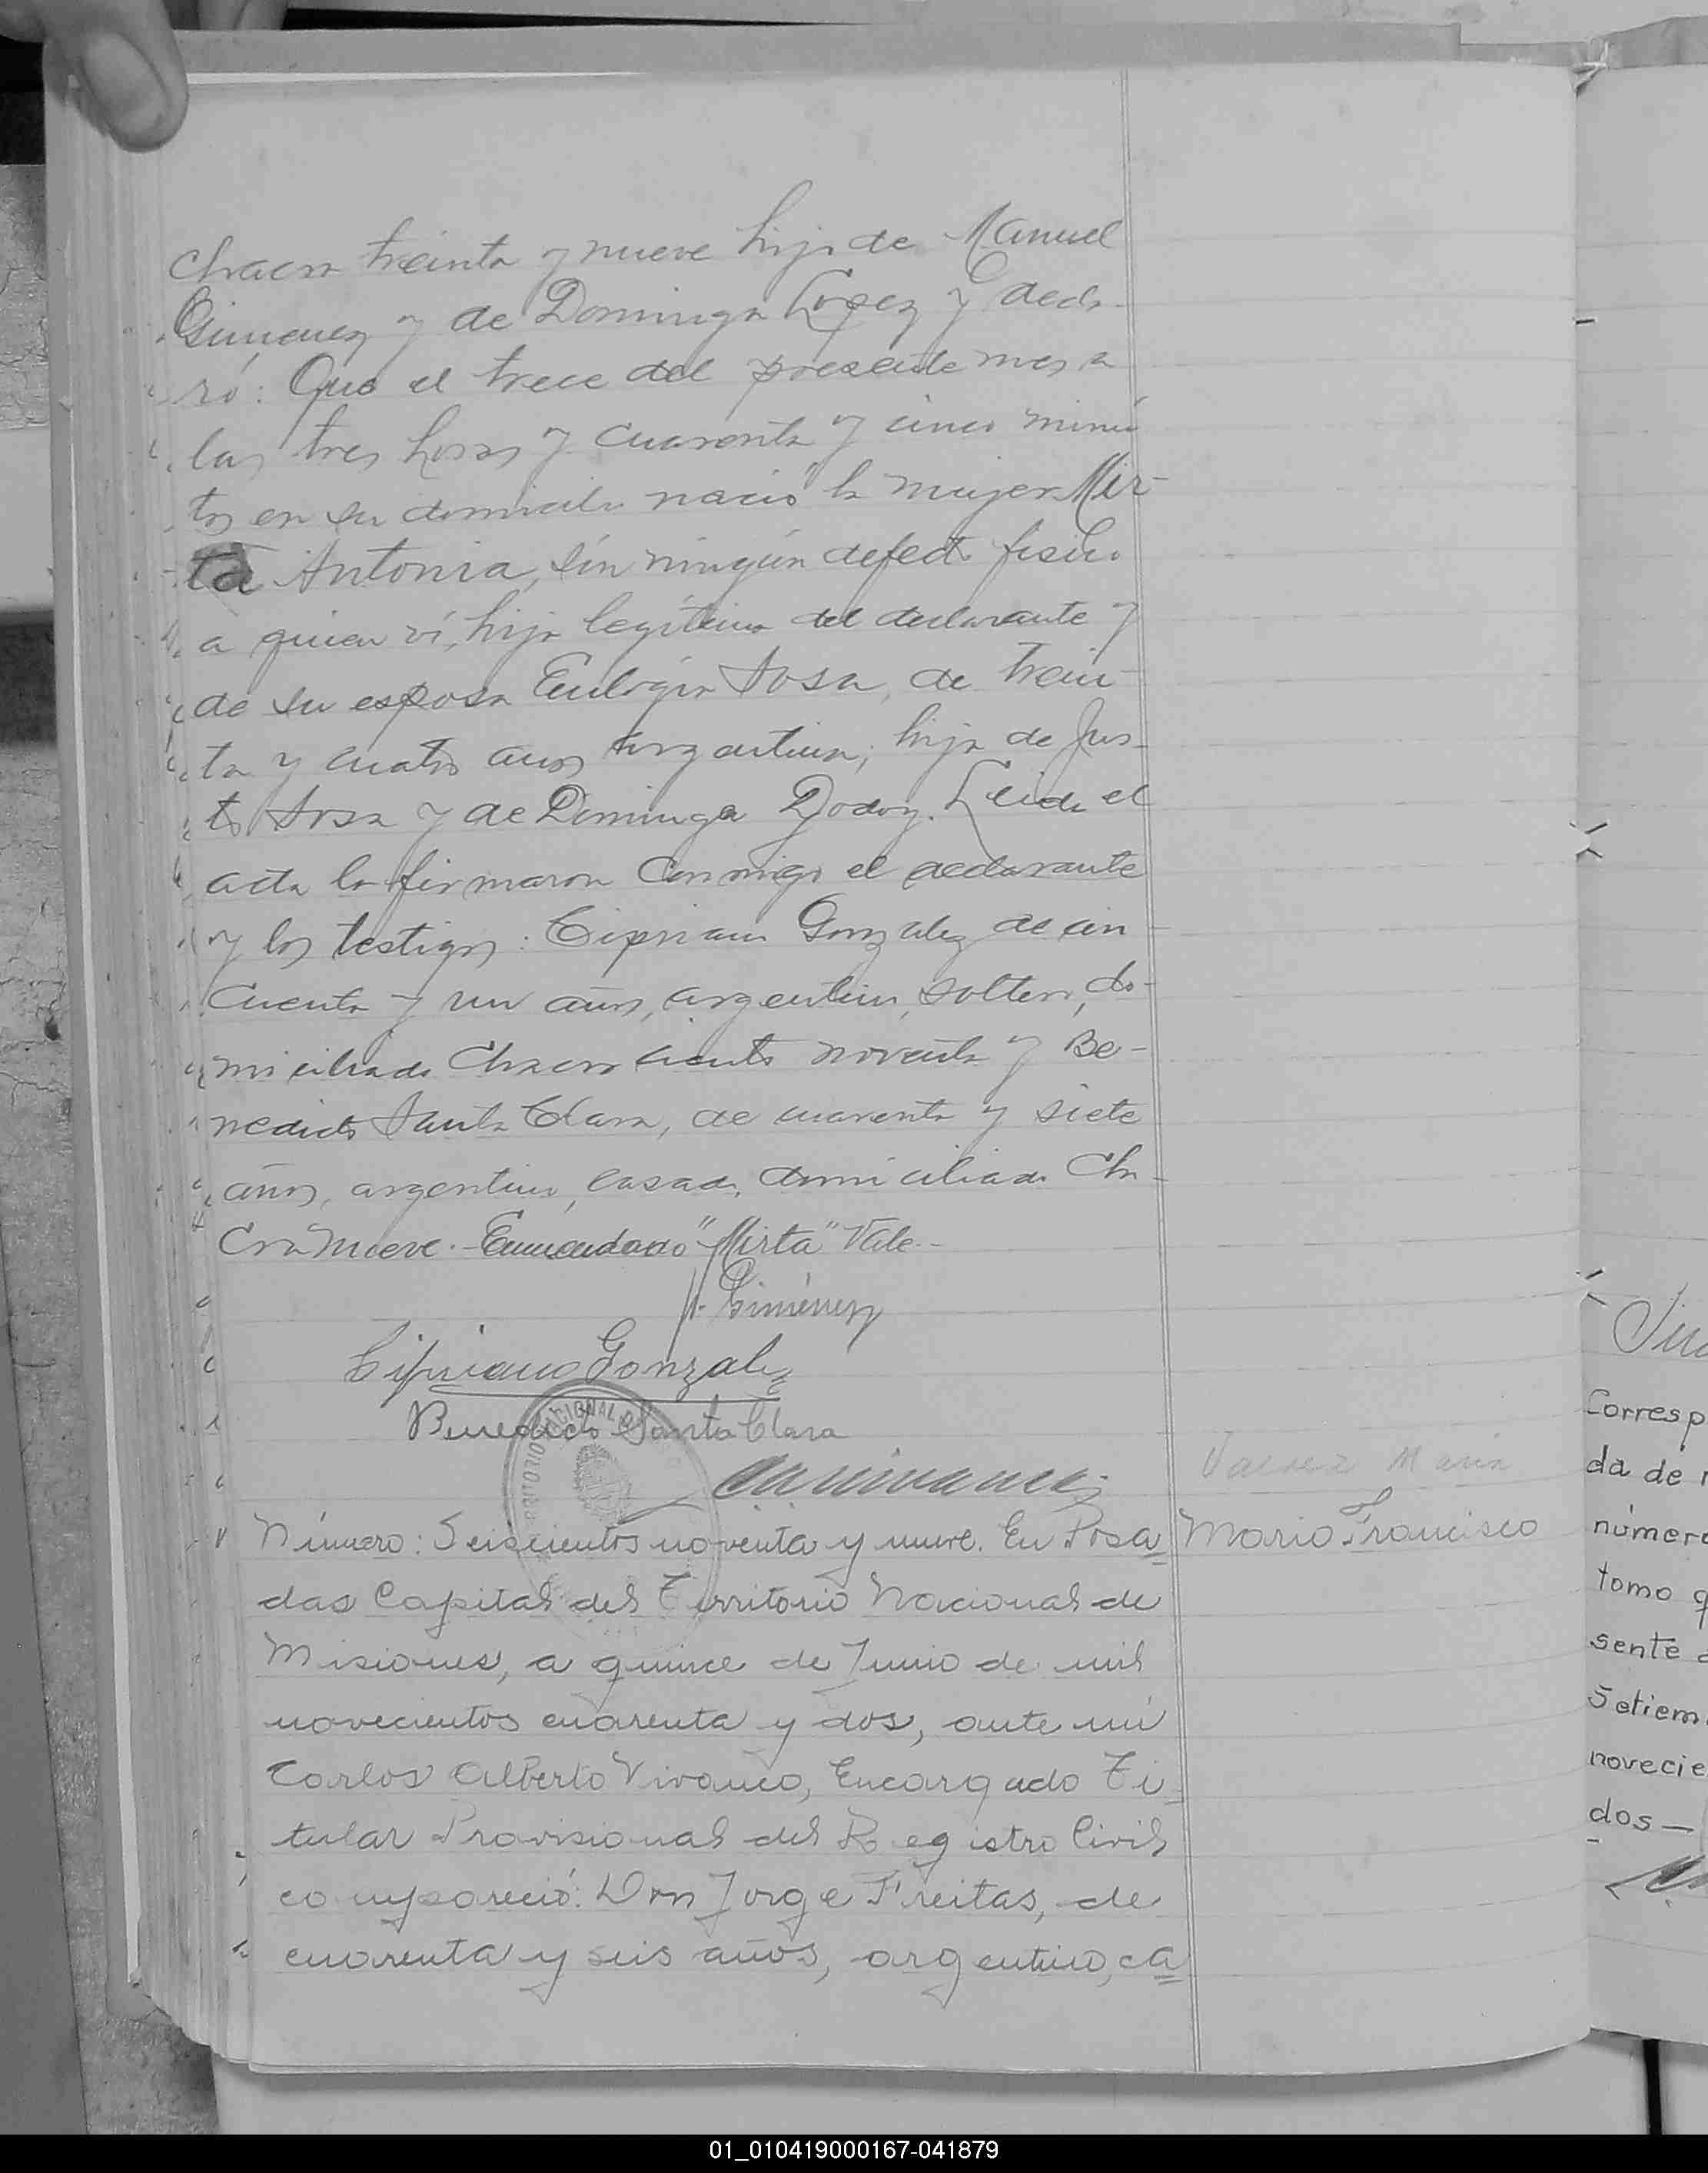 chacra treinta y nueve hijo de Manuel
Gimenez y de Dominga Lopez y decla-
ró: Que el trece del presente mes a
las tres horas y cuarenta y cinco minu
tos en su domicilio nació la mujer Mir-
ta Antonia, sin ningún defecto fisico
a quien ví, hija legítima del declarante y
de su esposa Eulogia Sosa, de trein-
ta y cuatro años argentina, hija de Jus-
to Sosa y de Dominga Godoy. Leida el
acta la firmaron conmigo el declarante
y los testigos: Cipriano Gonzalez de cin
cuenta y un años, argentino, soltero, do-
miciliado Chacra ciento noventa y Be-
nedicto Santa Clara, de cuarenta y siete
años, argentino, casado, domiciliado Cha-
cra nueve.- Enmendado "Mirta" Vale.-
Giménez
Cipriano Gonzalez
Benedicto Santa Clara
REGISTRO NACIONAL DE
Maria
Número: Seiscientos noventa y nueve. En Posa= Mario Francisco
das Capital del Territorio Nacional de
Misiones, a quince de Junio de mil
novecientos cuarenta y dos, ante mi
Carlos Alberto Vivanco, Encargado Ti=
tular Provisional del Registro Civil
compareció: Don Jorge Freitas, de
cuarenta y seis años, argentino, ca=
Corresp
da de
número
tomo
sente
Setiem
novecie
dos—
01_010419000167-041879